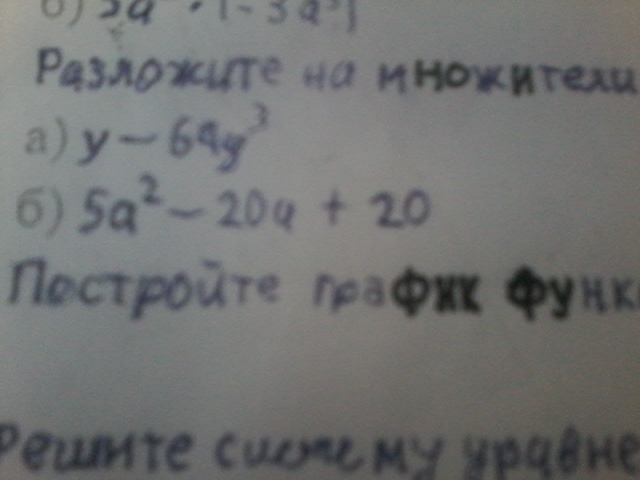 б)
Разложите на множители
а) y - 64y³
б) 5a² - 20a + 20
Постройте график функ
Решите систему уравне